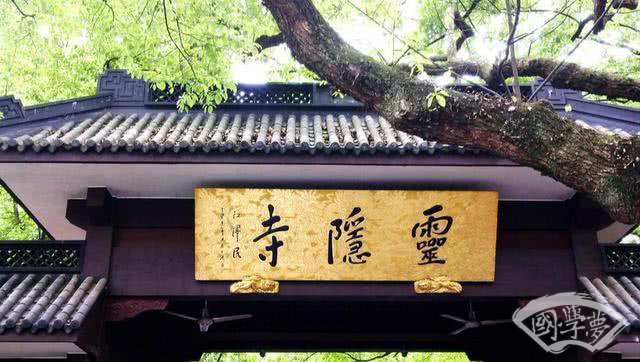 靈隱寺
江澤民
國學夢